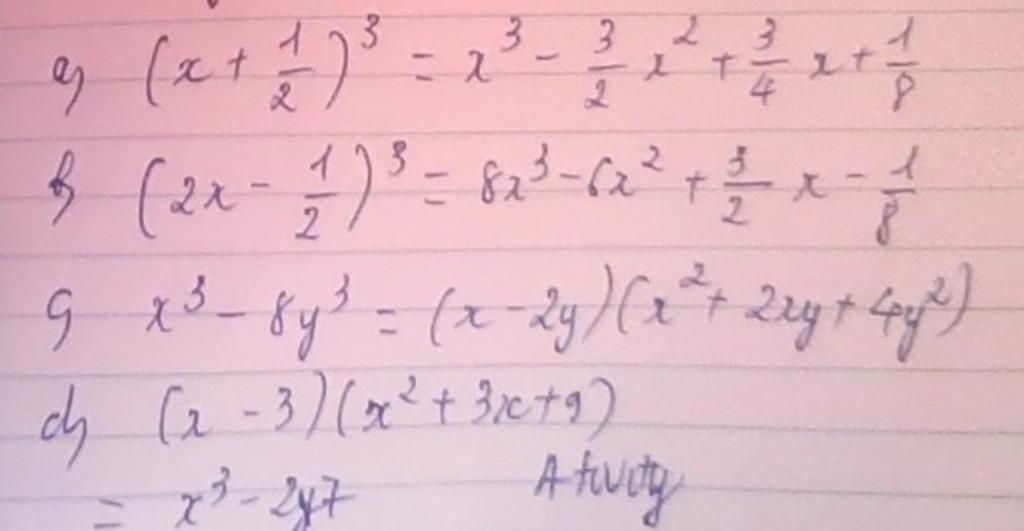 a) (x + 1/2)³ = x³ - 3/2 x² + 3/4 x + 1/8
b) (2x - 1/2)³ = 8x³ - 6x² + 3/2 x - 1/8
c) x³ - 8y³ = (x - 2y)(x² + 2xy + 4y²)
d) (x - 3)(x² + 3x + 9)
= x³ - 27